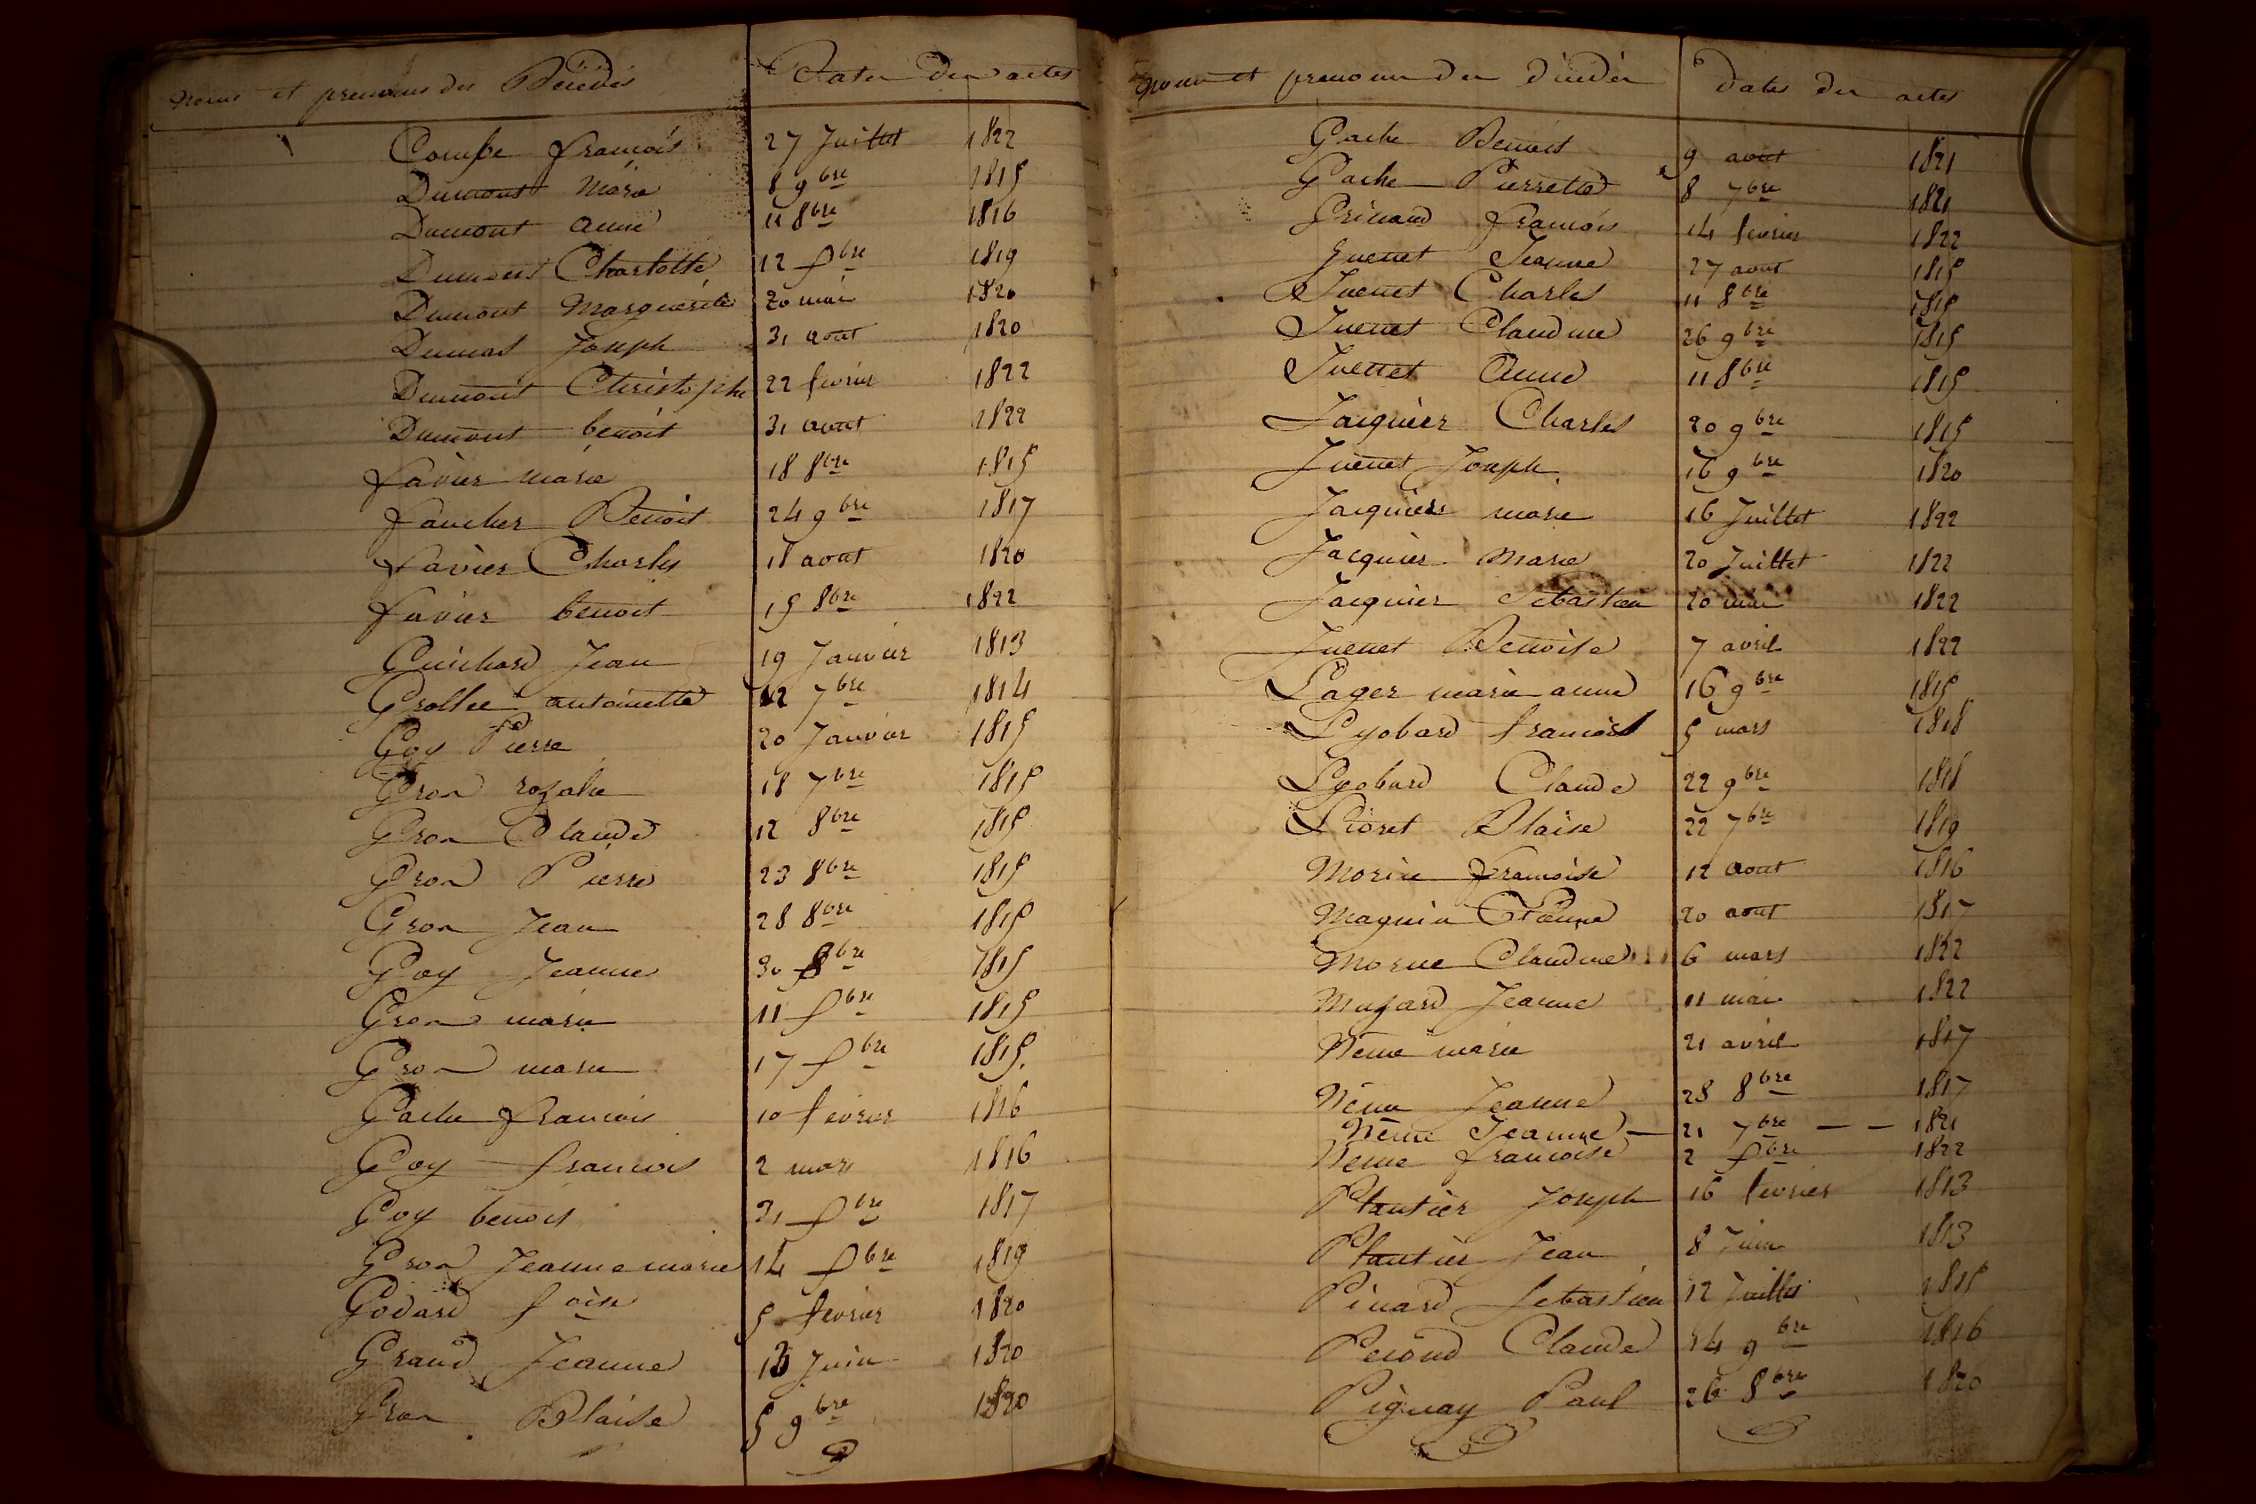 Noms et prenoms des Décédés Dates des actes
Compe françois 27 Juillet 1822
Dumont Marie 8 9bre 1815
Dumont anne 11 8bre 1816
Dumont Charlotte 12 Xbre 1819
Dumont Marguerite 20 mai 1820
Dumont Joseph 31 aout 1820
Dumont Christophe 22 fevrier 1822
Dumont benoit 31 aout 1822
favier marie 18 8bre 1815
faucher Benoit 24 9bre 1817
favier Charles 18 aout 1820
favier benoit 15 8bre 1822
Guichard Jean 19 Janvier 1813
Grollee antoinette 12 7bre 1814
Goy Pierre 20 Janvier 1815
Gron rozalie 18 7bre 1815
Gron Claude 12 8bre 1815
Gron Pierre 23 8bre 1815
Gron Jean 28 8bre 1815
Goy Jeanne 30 8bre 1815
Gron marie 11 Xbre 1815
Gron marie 17 Xbre 1815
Gache françois 10 fevrier 1816
Goy françois 2 mars 1816
Goy benoit 31 Xbre 1817
Gron Jeanne marie 14 Xbre 1819
Godard foise 5 fevrier 1820
Grand Jeanne 13 Juin 1820
Gron Blaise 5 9bre 1820
Noms et prenoms des décédés dates des actes
Gache Benoit 9 aout 1821
Gache Pierrette 8 7bre 1821
françois 14 fevrier 1822
Juenet Jeanne 27 aout 1815
Juenet Charles 11 8bre 1815
Juenet Claudine 26 9bre 1815
Juenet Anne 11 8bre 1815
Jacquier Charles 20 9bre 1815
Juenet Joseph 16 9bre 1820
Jacquier marie 16 Juillet 1822
Jacquier Marie 20 Juillet 1822
Jacquier Sebastien 20 mai 1822
Juenet Benoise 7 avril 1822
Lager marie anne 16 9bre 1815
Lyobard françois 5 mars 1818
Lyobard Claude 22 9bre 1818
Lioret Blaise 22 7bre 1819
Morin françoise 12 aout 1816
Magnin Etienne 20 aout 1817
Morne Claudine 6 mars 1822
Muzard Jeanne 11 mai 1822
Neme marie 21 avril 1817
Neme Jeanne 28 8bre 1817
Neme Jeanne 21 7bre 1821
Neme françoise 2 Xbre 1822
Plantier Joseph 16 fevrier 1813
Plantier Jean 8 Juin 1813
Pinard Sebastien 12 Juillet 1815
Claude 14 9bre 1816
Pignay Paul 26 8bre 1820